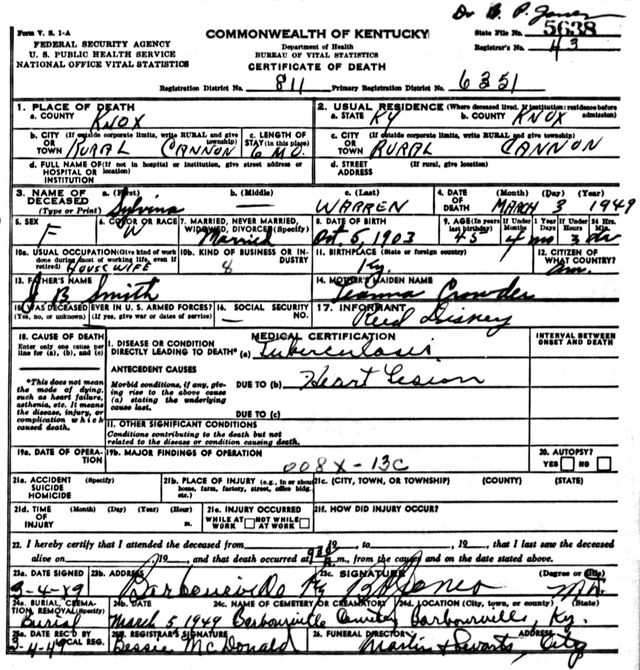 Dr B. P. Jones
Form V. S. 1-A
COMMONWEALTH OF KENTUCKY
State File No. 5638
FEDERAL SECURITY AGENCY
Department of Health
Registrar's No. 43
U. S. PUBLIC HEALTH SERVICE
BUREAU OF VITAL STATISTICS
NATIONAL OFFICE VITAL STATISTICS
CERTIFICATE OF DEATH
Registration District No. 811 Primary Registration District No. 6351
1. PLACE OF DEATH
a. COUNTY KNOX
2. USUAL RESIDENCE (Where deceased lived. If institution: residence before admission)
a. STATE KY b. COUNTY KNOX
b. CITY (If outside corporate limits, write RURAL and give township) OR TOWN RURAL CANNON
c. LENGTH OF STAY (in this place) 6 MO.
c. CITY (If outside corporate limits, write RURAL and give township) OR TOWN RURAL CANNON
d. FULL NAME OF (If not in hospital or institution, give street address or location) HOSPITAL OR INSTITUTION
d. STREET ADDRESS (If rural, give location)
3. NAME OF DECEASED (Type or Print)
a. (First) Sylvina
b. (Middle) —
c. (Last) WARREN
4. DATE OF DEATH (Month) (Day) (Year) MARCH 3 1949
5. SEX F
6. COLOR OR RACE W
7. MARRIED, NEVER MARRIED, WIDOWED, DIVORCED (Specify) Married
8. DATE OF BIRTH Oct. 5, 1903
9. AGE (In years last birthday) 45
If Under 1 Year Months Days 4 mo 3 da
If Under 24 Hrs. Hours Min.
10a. USUAL OCCUPATION (Give kind of work done during most of working life, even if retired) HOUSEWIFE
10b. KIND OF BUSINESS OR INDUSTRY 8
11. BIRTHPLACE (State or foreign country) Ky.
12. CITIZEN OF WHAT COUNTRY? Am.
13. FATHER'S NAME J B Smith
14. MOTHER'S MAIDEN NAME Leanna Crowder
15. WAS DECEASED EVER IN U. S. ARMED FORCES? (Yes, no, or unknown) (If yes, give war or dates of service)
16. SOCIAL SECURITY NO. —
17. INFORMANT Reed Disney
18. CAUSE OF DEATH
Enter only one cause per line for (a), (b), and (c)
MEDICAL CERTIFICATION
INTERVAL BETWEEN ONSET AND DEATH
I. DISEASE OR CONDITION DIRECTLY LEADING TO DEATH* (a) Tuberculosis
*This does not mean the mode of dying, such as heart failure, asthenia, etc. It means the disease, injury, or complication which caused death.
ANTECEDENT CAUSES
Morbid conditions, if any, giving rise to the above cause (a) stating the underlying cause last.
DUE TO (b) Heart Lesion
DUE TO (c)
II. OTHER SIGNIFICANT CONDITIONS
Conditions contributing to the death but not related to the disease or condition causing death.
19a. DATE OF OPERATION
19b. MAJOR FINDINGS OF OPERATION
008X-13C
20. AUTOPSY? YES NO
21a. ACCIDENT SUICIDE HOMICIDE (Specify)
21b. PLACE OF INJURY (e.g., in or about home, farm, factory, street, office bldg., etc.)
21c. (CITY, TOWN, OR TOWNSHIP) (COUNTY) (STATE)
21d. TIME OF INJURY (Month) (Day) (Year) (Hour) m.
21e. INJURY OCCURRED WHILE AT WORK NOT WHILE AT WORK
21f. HOW DID INJURY OCCUR?
22. I hereby certify that I attended the deceased from 19 , to , 19 , that I last saw the deceased
alive on 19 , and that death occurred at m., from the causes and on the date stated above.
23a. DATE SIGNED 3-4-49
23b. ADDRESS Barbourville Ky
23c. SIGNATURE B P Jones (Degree or title) M.D.
24a. BURIAL, CREMATION, REMOVAL (Specify) Burial
24b. DATE March 5 1949
24c. NAME OF CEMETERY OR CREMATORY Barbourville Cemetery
24d. LOCATION (City, town, or county) (State) Barbourville, Ky.
25a. DATE REC'D BY LOCAL REG. 3-4-49
25b. REGISTRAR'S SIGNATURE Bessie McDonald
26. FUNERAL DIRECTOR ADDRESS Martin & City